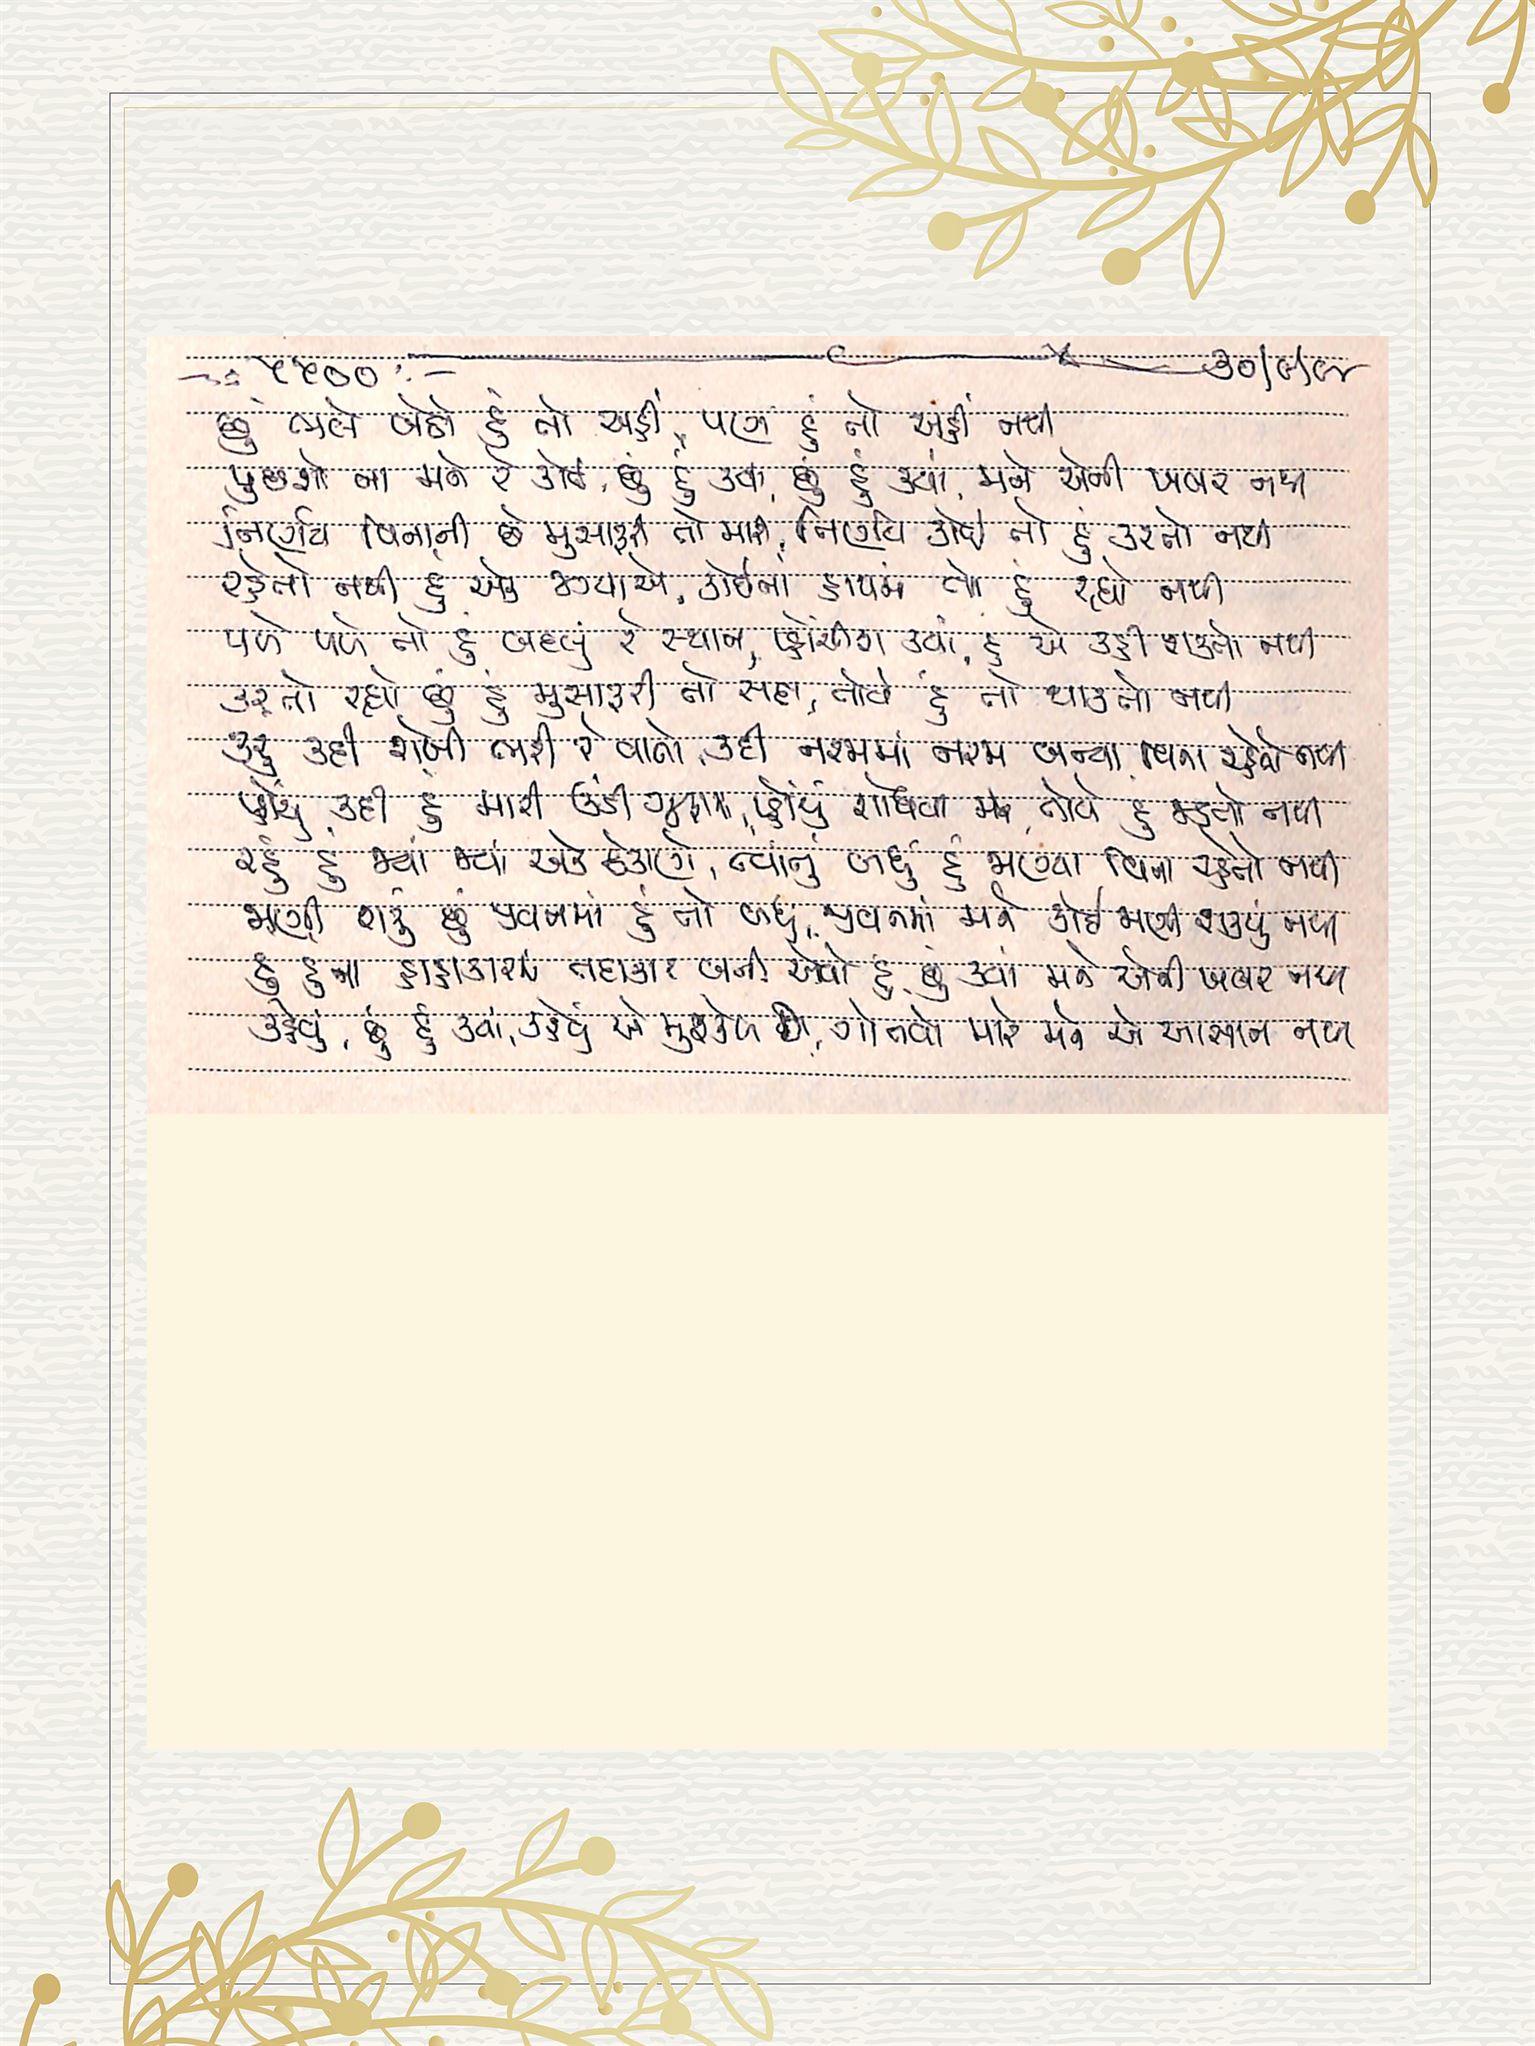 ૫૫૦૦
છું ભલે બેઠો હું તો અહીં, પણ હું તો અહીં નથી
પુછશો ના મને રે કોઈ, છું હું ક્યાં, છું હું ક્યાં, મને એની ખબર નથી
નિર્ણય વિનાની છે મુસાફરી તો મારી, નિર્ણય કોઈ તો હું કરતો નથી
રહેતો નથી હું એક જગ્યાએ, કોઈનો કાયમ તો હું રહ્યો નથી
પળે પળે તો હું બદલું રે સ્થાન, પહોંચીશ ક્યાં, હું એ કહી શકતો નથી
કરતો રહ્યો છું હું મુસાફરી તો સદા, તોયે હું તો થાકતો નથી
કરું કદી શેખી ભરી રે વાતો, કદી નરમમાં નરમ બન્યા વિના રહેતો નથી
પહોંચું કદી હું મારી ઉંડી પહોંચું શોધવા મને, તોયે હું જડતો નથી
રહું હું જ્યાં જ્યાં એક ઠેકાણે, ત્યાંનું બધું હું જાણ્યા વિના રહેતો નથી
જાણી શકું છું જીવનમાં હું તો બધું, જીવનમાં મને કોઈ જાણી શક્યું નથી
હું હુંના બની એવો હું છું ક્યાં મને એની ખબર નથી
કહેવું, છું હું ક્યાં, કહેવું એ મુશ્કેલ છે, ગોતવો મારે મને એ આસાન નથી